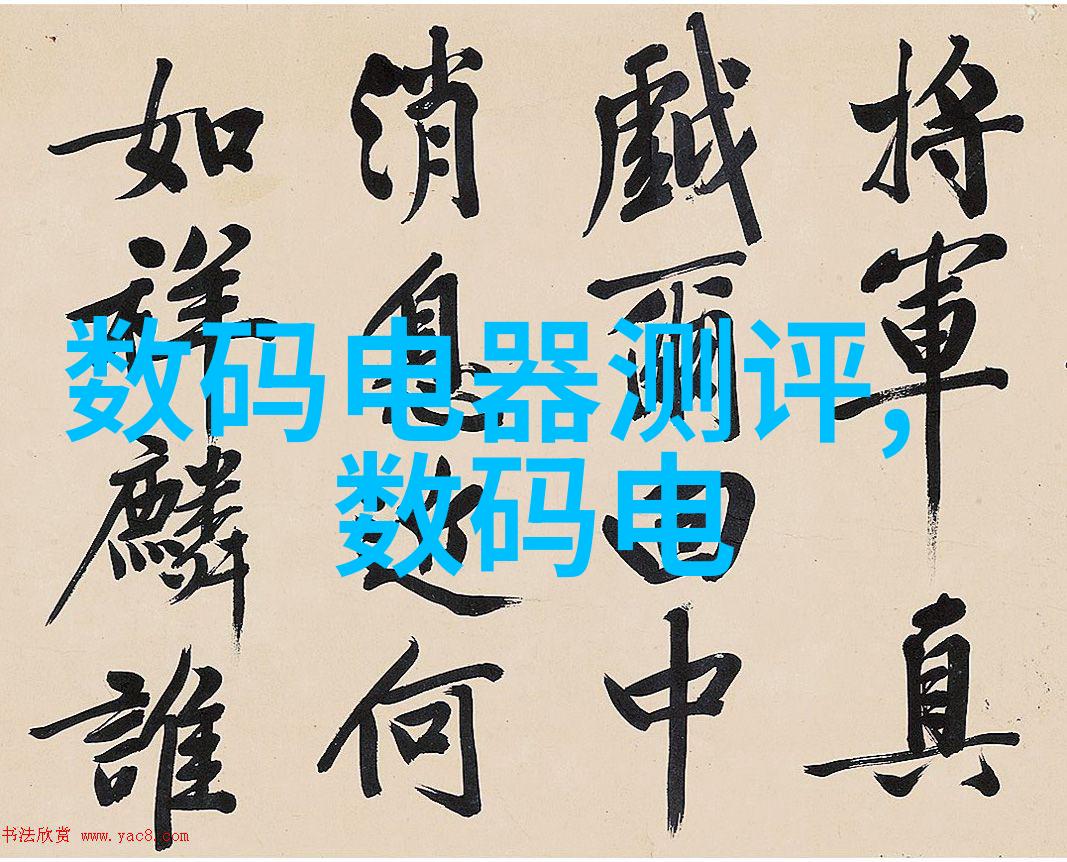 將軍真
戲爾中
消息何
如祥麟誰
数码电器测评,
数码电
书法欣赏 www.yac8.com